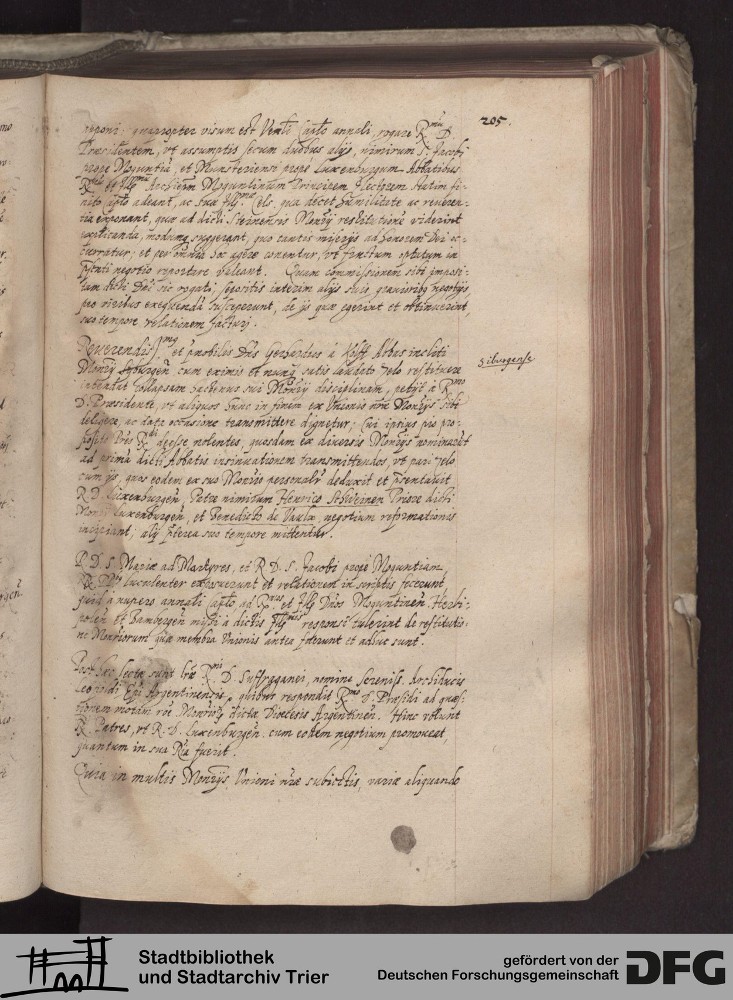 205.
opponi: quapropter visum est Venli Caplo annali, rogare Rmu D.
Præsidentem, vt assumptis secum duobus alijs, nimirum S. Jacobi
prope Moguntiã, et Munsteriensi prope Luxenburgum Abbatibus
Rmu et Illmu Archiepm Moguntinum Principem Electorem statim fi-
nito Caplo adeant, ac suæ Illmæ Cels. qua decet humilitate ac reveren-
tia exponant, quæ ad dicti Steinensis Monrij restitutione viderint
explicanda, modumq suggerant, quo tantis miserijs ad honorem Dei oc-
curratur; et per omnia hoc agere conentur, vt fructum optatum in
psenti negotio reportare valeant. Quam commissionem sibi imposi-
tam dicti Dni sic rogati, sepositis interim alijs suis gravioribq negotijs,
pro viribus exequendã susceperunt, de ijs quæ egerint et obtinuerint
suo tempore relationem facturi.
Reverendissimq et pnobilis Dns Gerhardus à Kolff Abbas incliti
Monrij Syburgen cum eximio et nunq satis laudato zelo restituere
intendat collapsam hactenus sui Monrij disciplinam, petijt à Rmo
D. Præsidente, vt aliquos hunc in finem ex Vnionis nræ Monrijs sibi
deligere, ac data occasione transmittere dignetur; Cui ipsius pio pro-
posito Pres Rdi deesse nolentes, quosdam ex diversis Monrijs nominarut
ad primã dicti Abbatis insinuationem transmittendos, vt pari zelo
cum ijs, quos eodem ex suo Monrio personalr deduxit et psentavit
R. D. Luxenburgen, Patre nimirum Henrico Stweinen Priore dicti
Monrij Luxenburgen, et Benedicto de Vaulx, negotium reformationis
incipiant; alij pterea suo tempore mittentur.
Siburgense
R. D. S. Mariæ ad Martyres, et R. D. S. Jacobi prope Moguntiam
RR. PPbq luculenter exposuerunt et relationem in scriptis fecerunt
quid à nupero annali Caplo ad Rmos et Illos Dnos Moguntinen Herbi-
polen et Bambergen missi à dictis Illmis responsi tulerint de restitutio-
ne Monriorum quæ membra Vnionis antea fuerunt et adhuc sunt.
Post hæc lectæ sunt lræ Rmi D. Suffraganei, nomine Sereniss. Archiducis
Leopoldi Epi Argentinensis, quibus respondit Rmo D. Præsidi ad quæs-
tionem motam rõe Monriorũ dictæ Diœcesis Argentinen. Hinc volunt
R. Patres, vt R. D. Luxenburgen. cum eodem negotium promoveat
quantum in sua Ra fuerit.
Quia in multis Monrijs Vnioni nræ subiectis, variæ aliquando
Stadtbibliothek
und Stadtarchiv Trier
gefördert von der
Deutschen Forschungsgemeinschaft
DFG